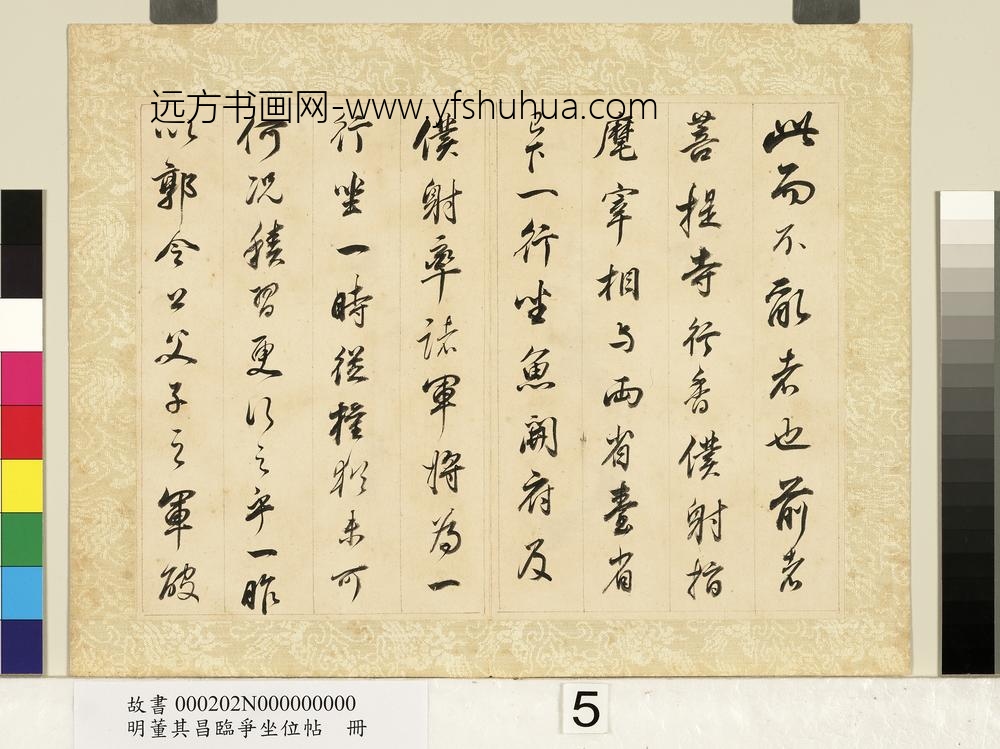 远方书画网-www.yfshuhua.com
此而不能者也前者
菩提寺行香僕射指
麾宰相与兩省臺省
已下一行坐魚開府及
僕射率諸軍將為一
行坐一時從權猶未可
何況積習更行之乎一昨
以郭令公父子之軍破
故書 000202N000000000
明董其昌臨爭坐位帖 冊
5